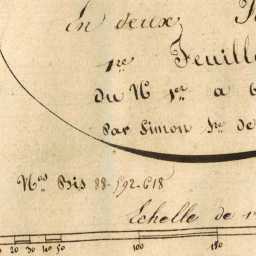 En deux
1re Feuill
du N 1er a 6
Par Simon
Nos Bis 88-592-618
Echelle de 1
10 20 30 40 50 100 150